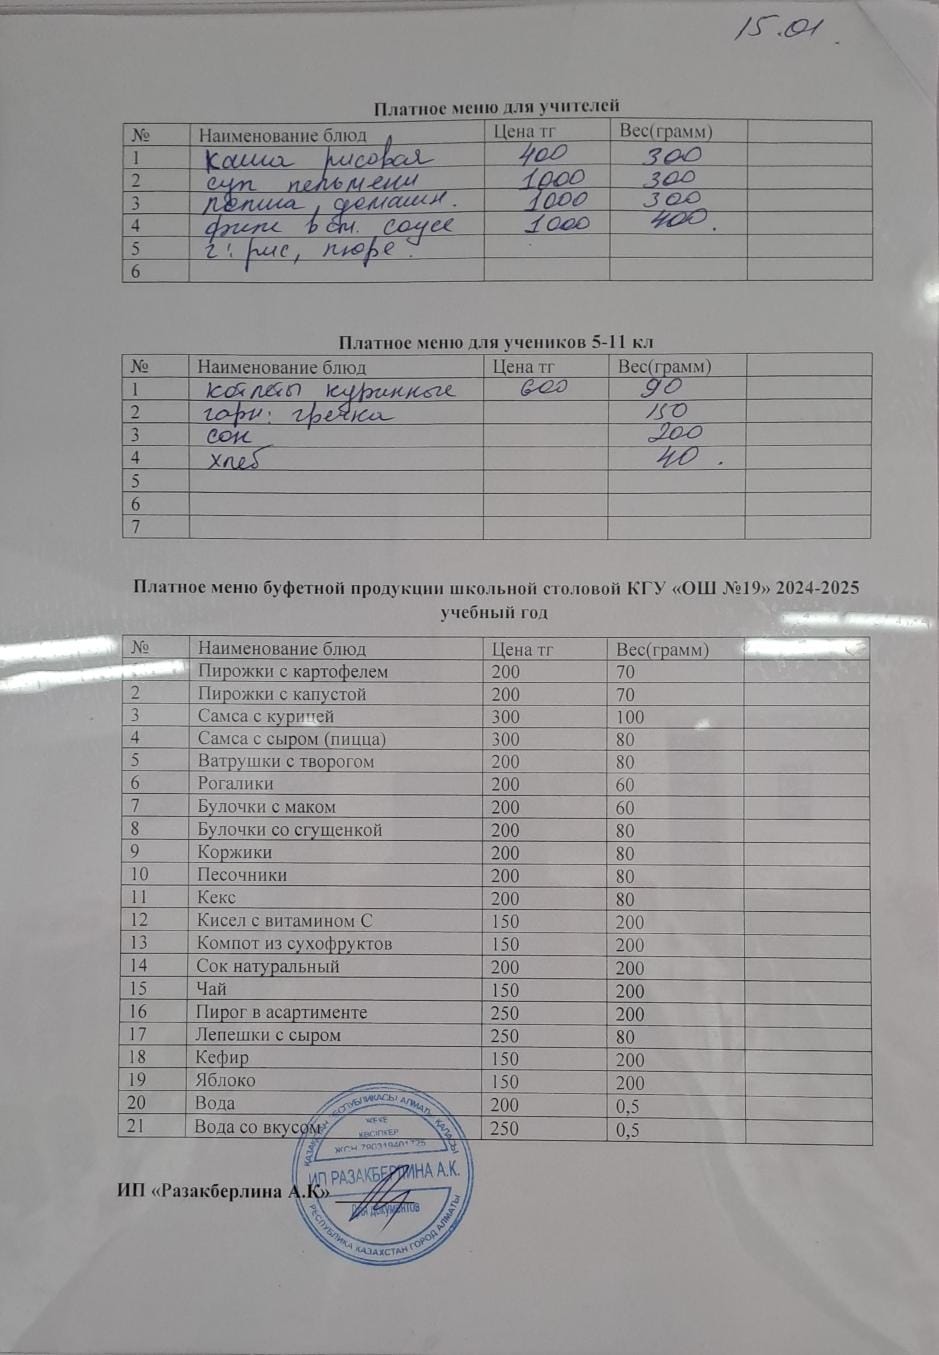 15.01.
Платное меню для учителей
№ Наименование блюд Цена тг Вес(грамм)
1 каша рисовая 400 300
2 суп пельмени 1000 300
3 лапша домашн. 1000 300
4 филе в см. соусе 1000 400.
5 г: рис, пюре.
6
Платное меню для учеников 5-11 кл
№ Наименование блюд Цена тг Вес(грамм)
1 котлеты куринные 600 90
2 гарн: гречка 150
3 сок 200
4 хлеб 40.
5
6
7
Платное меню буфетной продукции школьной столовой КГУ «ОШ №19» 2024-2025
учебный год
№ Наименование блюд Цена тг Вес(грамм)
Пирожки с картофелем 200 70
2 Пирожки с капустой 200 70
3 Самса с курицей 300 100
4 Самса с сыром (пицца) 300 80
5 Ватрушки с творогом 200 80
6 Рогалики 200 60
7 Булочки с маком 200 60
8 Булочки со сгущенкой 200 80
9 Коржики 200 80
10 Песочники 200 80
11 Кекс 200 80
12 Кисел с витамином С 150 200
13 Компот из сухофруктов 150 200
14 Сок натуральный 200 200
15 Чай 150 200
16 Пирог в асартименте 250 200
17 Лепешки с сыром 250 80
18 Кефир 150 200
19 Яблоко 150 200
20 Вода 200 0,5
21 Вода со вкусом 250 0,5
ИП «Разакберлина А.К»
ҚАЗАҚСТАН РЕСПУБЛИКАСЫ АЛМАТЫ ҚАЛАСЫ
ЖЕКЕ
КӘСІПКЕР
ЖСН 790319401725
ИП РАЗАКБЕРЛИНА А.К.
Для документов
РЕСПУБЛИКА КАЗАХСТАН ГОРОД АЛМАТЫ